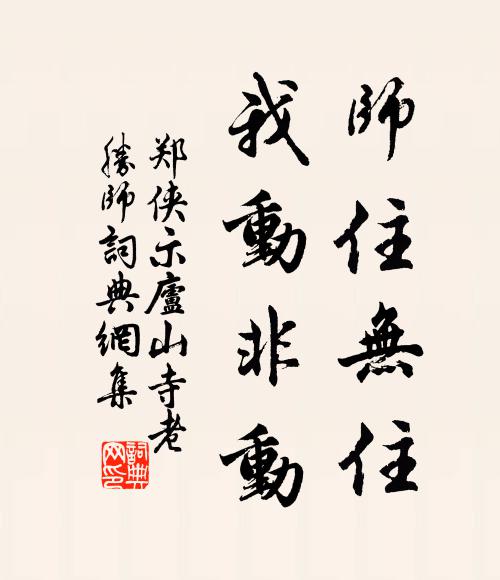 師住無住
我動非動
郑侠示廬山寺老
勝師詞典網集
詞典网印